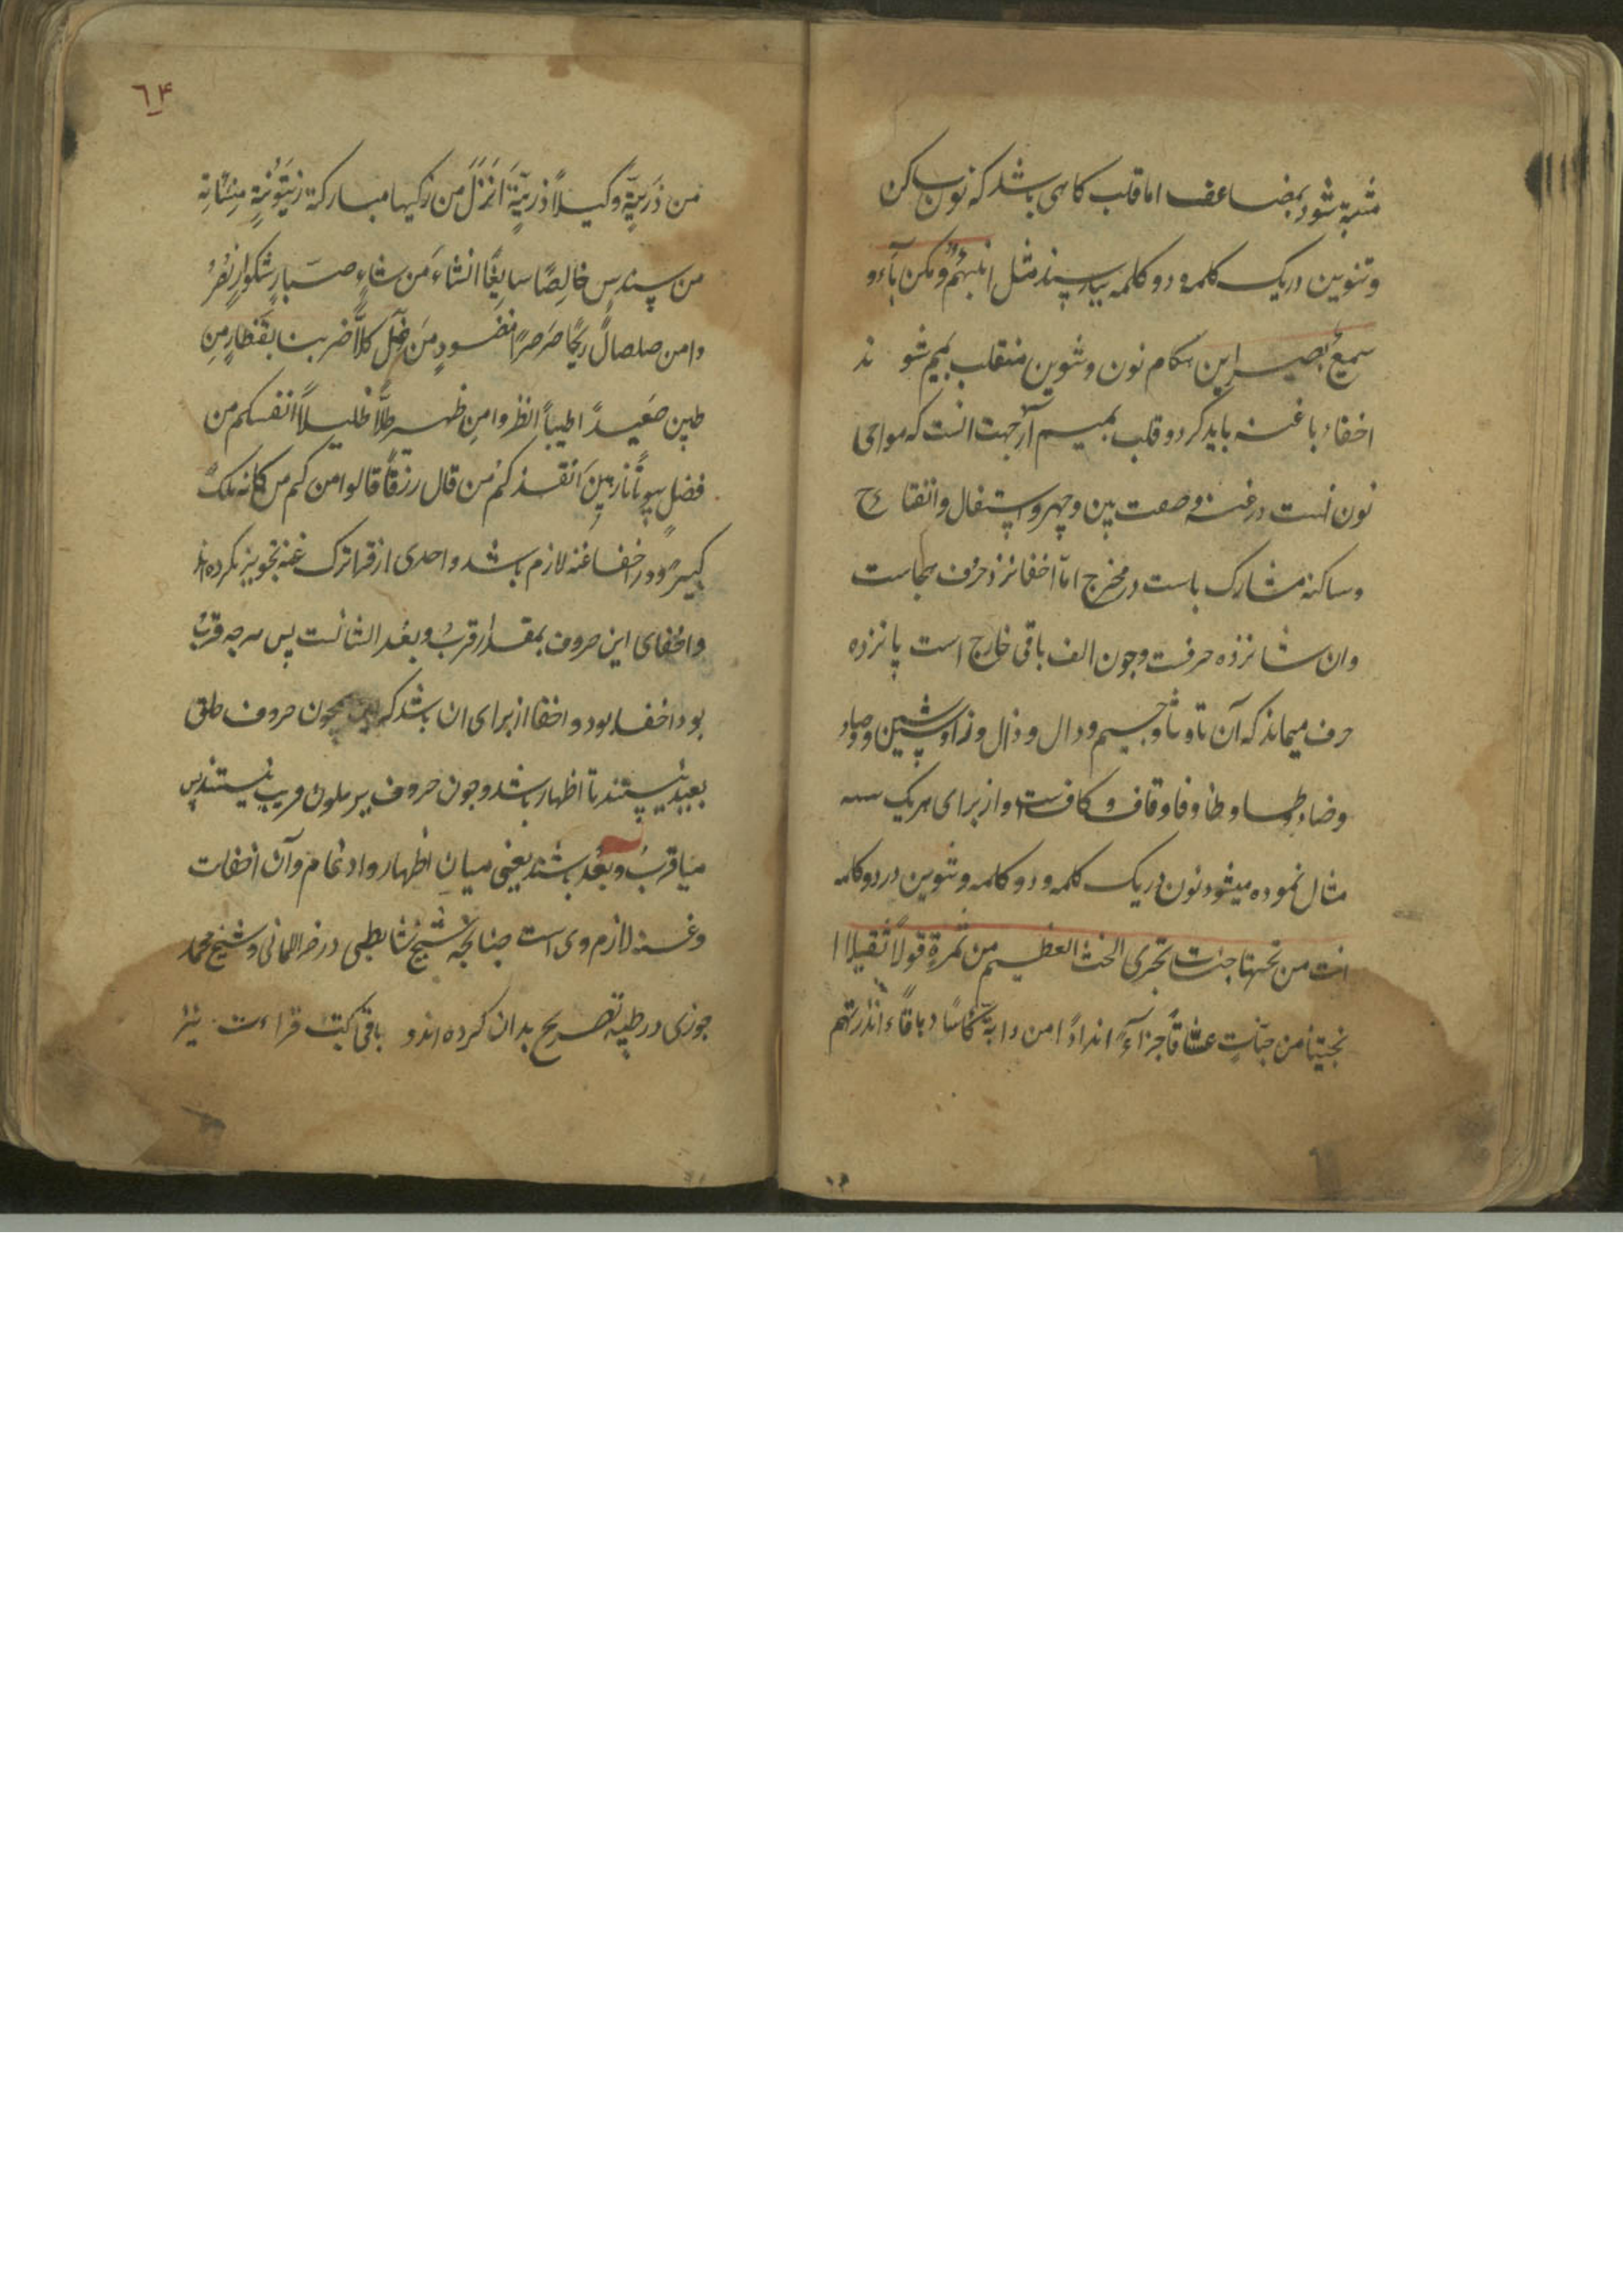 مشبه شود بمضاعف اما قلب کاهی باشد که نون ساکن
وتنوین در یک کلمه و دو کلمه ببا رسند مثل انبئهم ومن باء و
سمیع بصیر این هنکام نون وتنوین منقلب بمیم شو ند
اخفاء با غنه باید کرد و قلب بمیم از جهت انست که مواخی
نون است در غنه و صفت بین و جهر و استفال و انفتاح
و ساکنه مشارک باست در مخرج اما اخفا نزد حروف هجاست
وان شانزده حرفست وچون الف باقی خارج است پانزده
حرف میماند که آن تا و ثا و جیم و دال و ذال و زا و سین و شین و صاد
وضاد و طا و ظا و فا و قاف و کافست و از برای هر یک سه
مثال نموده میشود نون در یک کلمه و دو کلمه وتنوین در دو کلمه
انت من تحتها جنات تجری الحنث العظیم من ثمرة قولا ثقیلا ا
نجیتنا من جنات عشاقا جزآء اندادا من دابة کاسا دهاقا ءانذرتهم
٦۴
من ذریة وکیلا ذریة انزل من زکیها مبارکة زیتونة منسانه
من سندس خالصا سایغا انشاء من شاء صبار شکور انصر
وا من صلصال ریحا صرصرا منضود من ضل کلا ضربنا بقنطار من
طین صعیدا طیبا انظروا من ظهیر ظلا ظلیلا انفسکم من
فضل بیوتا فارهین انقذکم من قال رزقا قالوا من کم من کانه ملک
کریم ودر اخفا غنه لازم باشد و احدی از قرا ترک غنه تجویز نکرده اند
واخفای این حروف بمقدار قرب و بعد ایشانست پس هرچه قرب
بود اخفا بود و اخفا از برای ان باشد که همچون حروف حلق
بعید نیستند تا اظهار باشد وچون حروف یرملون قریب نیستند پس
میان قرب و بعد باشند یعنی میان اظهار و ادغام و آن اخفات
وغنه لازم وی است چنانچه شیخ شاطبی در حرز الامانی و شیخ محمد
جزری در طیبه تصریح بدان کرده اند و باقی کتب قراءت نیز